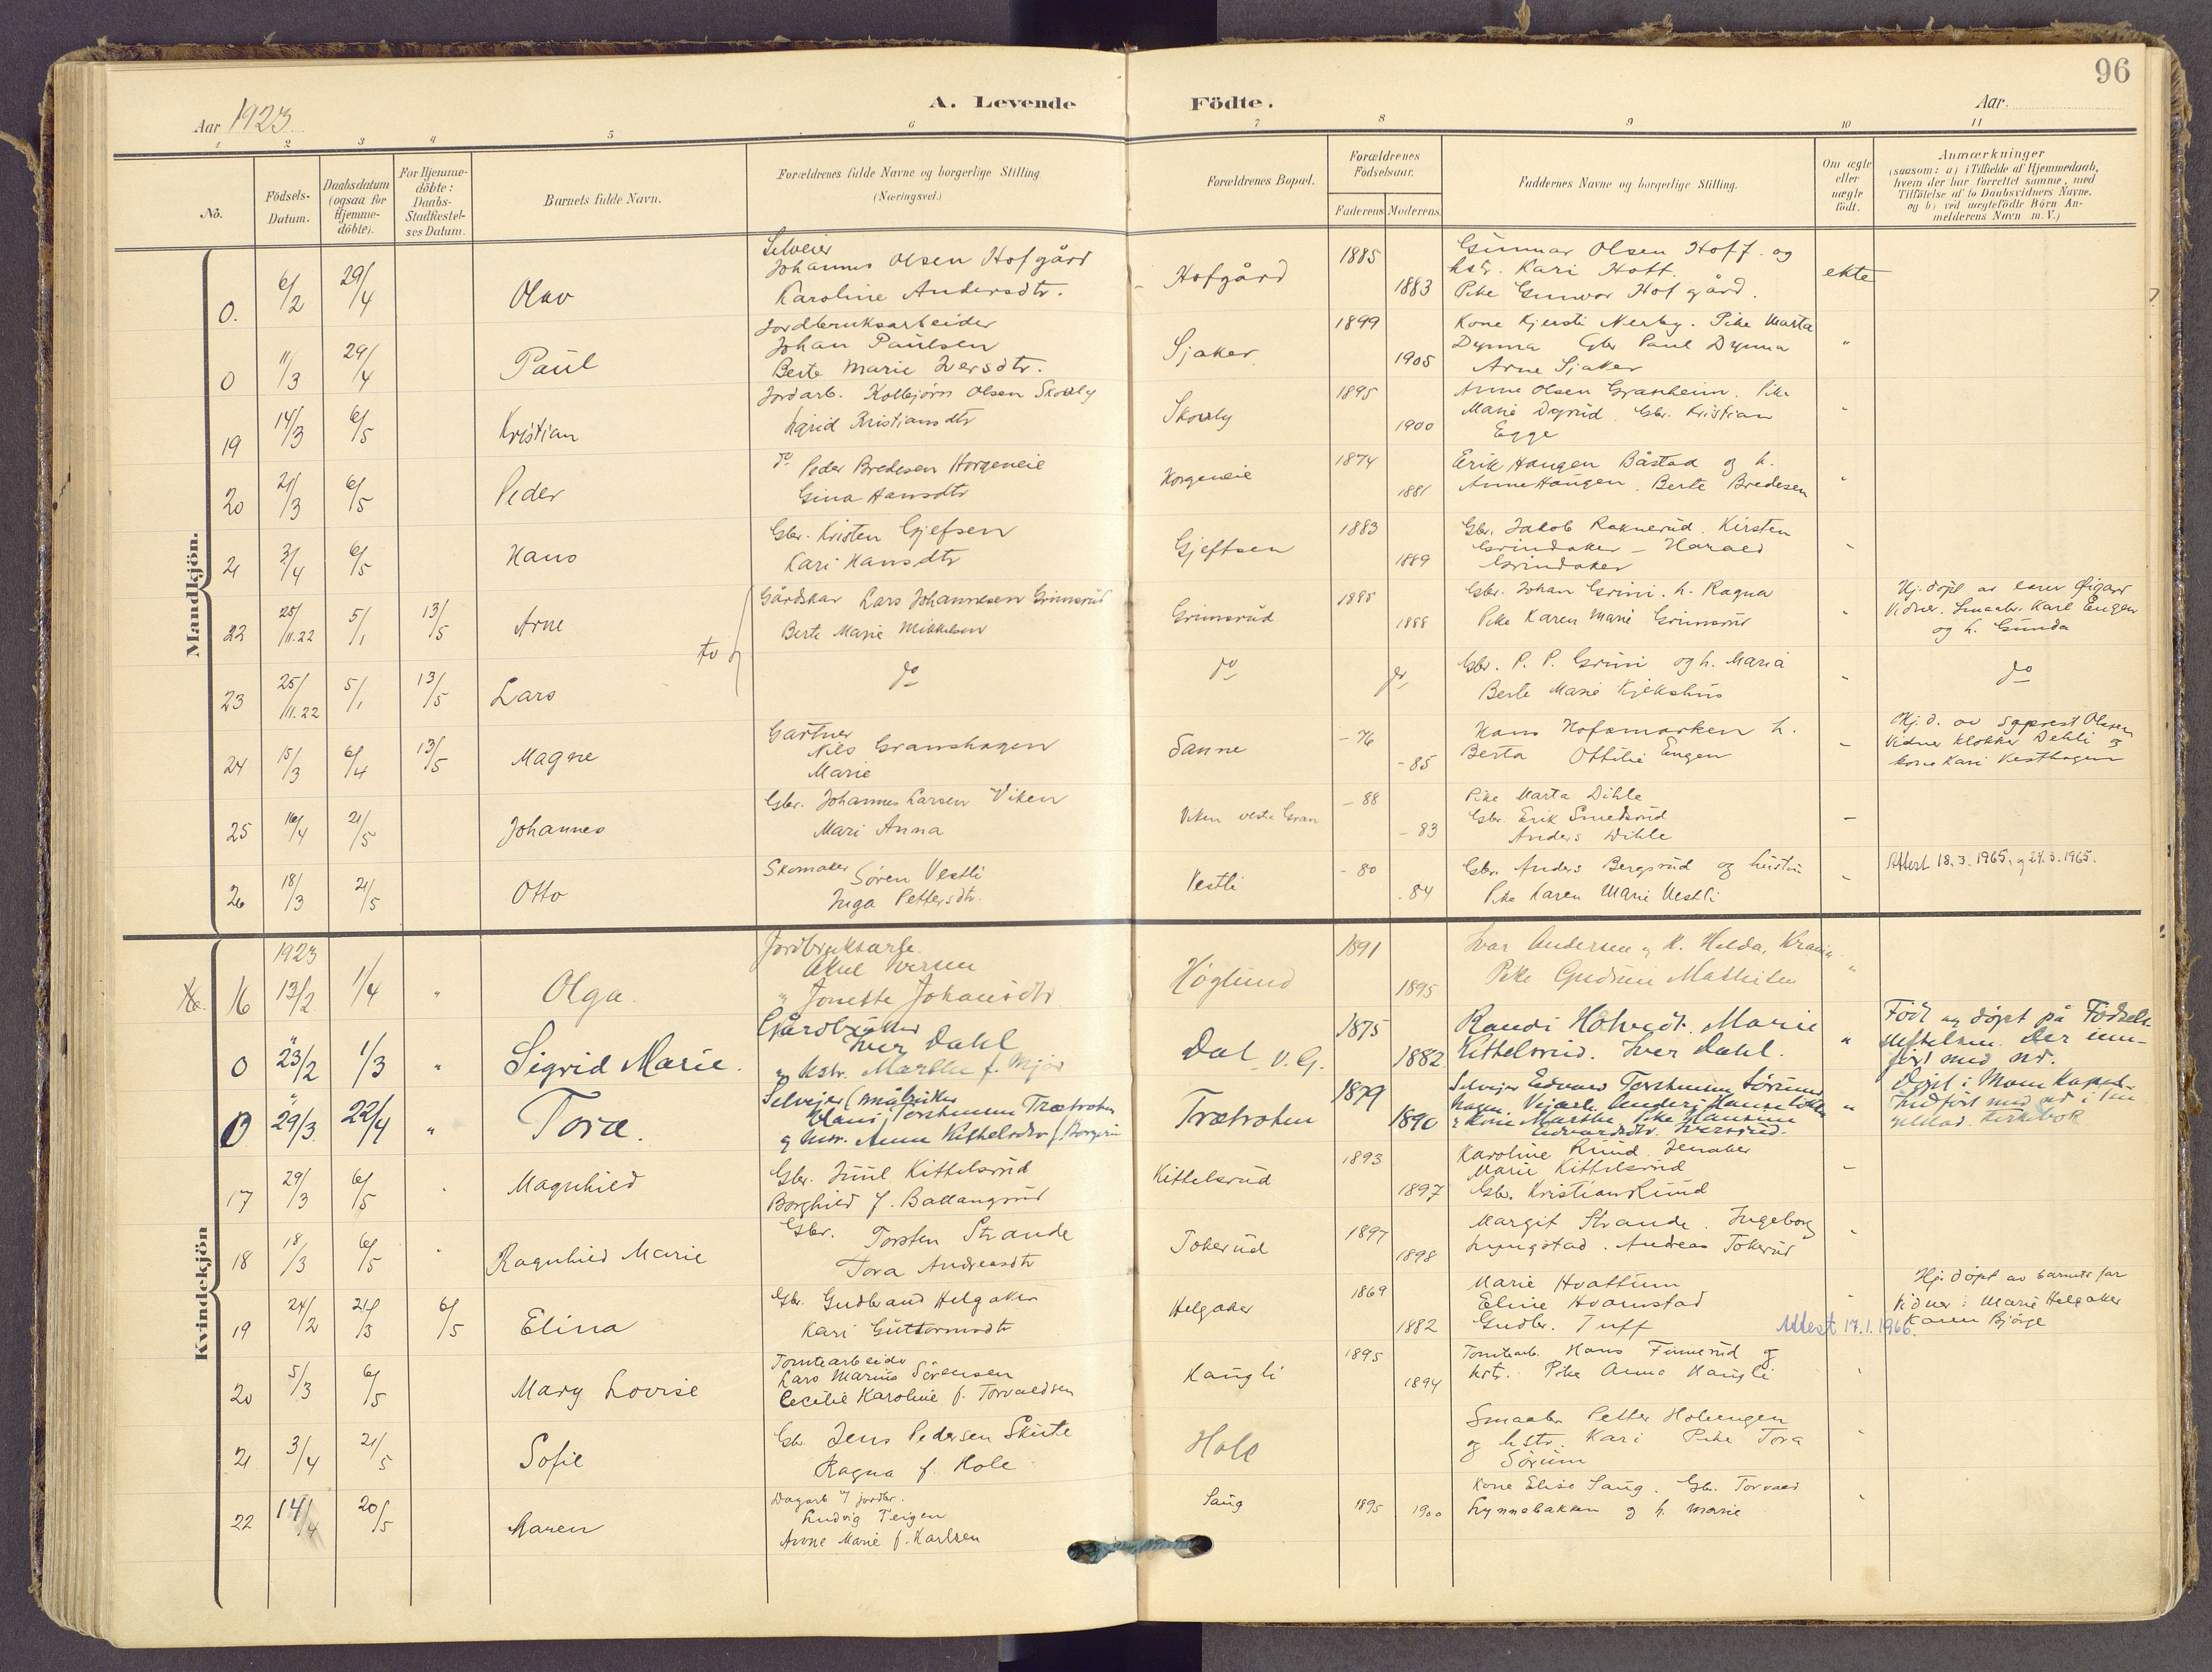 96
Aar 1923
A. Levende Födte.
Aar.
1 2 3 4 5 6 7 8 9 10 11
No.
Födsels-Datum.
Daabsdatum (ogsaa for Hjemme-döbte).
For Hjemme-döbte: Daabs-Stadfæstel-ses Datum.
Barnets fulde Navn.
Forældrenes fulde Navne og borgerlige Stilling (Næringsvei.)
Forældrenes Bopæl.
Forældrenes Födselsaar.
Faderens Moderens
Faddernes Navne og borgerlige Stilling.
Om ægte eller uægte födt.
Anmærkninger
(saasom: a) i Tilfælde af Hjemmedaab, hvem der har forrettet samme, med Tilföielse af to Daabsvidners Navne, og b) ved uægtefödte Börn An-melderens Navn m. V.)
Mandkjön.
0. 6/2 29/4 Olav
Selveier
Johannes Olsen Hofgård
Karoline Andersdtr.
Hofgård 1885 1883
Gunnar Olsen Hoff. og
hstr. Kari Hoff.
Pike Gunvor Hofgård.
ekte
0 11/3 29/4 Paul
Jordbruksarbeider
Johan Paulsen
Berte Marie Iversdtr.
Sjaker 1899 1905
Kone Kjersti Nerby. Pike Marta
Dynna Gbr Paul Dynna
Arne Sjaker
"
19 14/3 6/5 Kristian
Jordarb. Kolbjørn Olsen Skovly
Sigrid Kristiansdtr
Skovly 1895 1900
Anne Olsen Granheim. Pike
Marie Dyrud. Gbr. Kristian
Egge
20 21/3 6/5 Peder
do Peder Bredesen Horgeneie
Gina Hansdtr
Horgeneie 1874 1881
Erik Haugen Båstad og h.
Anne Haugen. Berte Bredesen
21 3/4 6/5 Hans
Gbr. Kristen Gjefsen
Kari Hansdtr
Gjefsen 1883 1889
Gbr. Jakob Raknerud. Kirsten
Grindaker - Harald
Grindaker
22 25/11.22 5/1 13/5 Arne
Gårdskar Lars Johannesen Grimsrud
Berte Marie Mikkelsen
Grimsrud 1898 1898
Gbr. Johan Grini. h. Ragna
Pike Karen Marie Grimsrud
Hj. døpt av
Vidner. Smaabr. Karl Engen
og h. Gunda
23 25/11.22 5/1 13/5 Lars
do do do
Gbr. P. P. Grini og h. Maria
Berte Marie Kjekshus
do
24 15/3 6/4 13/5 Magne
Gartner
Nils Granshagen
Marie
Sanne -76 -85
Hans Hofsmarken h.
Berta Ottilie Engen
Hj. d. av sgprest Olssen
Vidner klokker Dehli og
kone Kari Vesthagen
25 16/4 21/5 Johannes
Gbr. Johannes Larsen Viken
Mari Anna
Viken vestre Gran -88 -83
Pike Marta Dihle
Gbr. Erik Smedsrud
Anders Dihle
26 18/3 21/5 Otto
Skomaker Søren Vestli
Inga Pettersdtr.
Vestli -80 -84
Gbr. Anders Bergsrud og hustru
Pike Karen Marie Vestli
Attest 18.3.1965. og 24.3.1965.
Kvindekjön
1923
16 13/2 1/4 " Olga.
Jordbruksarb.
Iversen
" Jonette Johansdtr
Høglund 1891 1895
Ivar Andersen og K. Helda,
Pike Gudrun Mathisen
"
0 23/2 1/3 " Sigrid Marie.
Gårdbruker
Iver Dahl
og hstr. Marthe f. Mjør
Dal V. G. 1875 1882
Randi Holvedt. Marie
Kittelsrud. Iver Dahl.
"
Født og døpt på Fødsels-
stiftelsen. Der inn-
ført med nr.
0 29/3. 22/4 " Tora.
Selveier
Torstensen Trætroten
og hstr. Anne Kittelsdtr f.
Trætroten 1879 1890
Selveier Edvard Torstensen Sørum
"
Døpt i Moen Kapel.
Indført med nr i
kirkebok
17 29/3 6/5 Magnhild
Gbr. Juul Kittelsrud
Borghild f. Ballangrud
Kittelsrud 1893 1897
Karoline Rund Jenaker
Marie Kittelsrud
Gbr. Kristian Rund
18 18/3 6/5 Ragnhild Marie
Gbr. Torsten Strande
Tora Andreasdtr
Tokerud 1897 1898
Margit Strande. Ingeborg
Lyngstad. Andreas Tokerud
19 24/2 21/3 6/5 Elina
Gbr. Gudbrand Helgaker
Kari Guttormsdtr
Helgaker 1869 1882
Marie Hvattum
Eline Hvamstad
Gudbr. Tuff
Attest 17.1.1966.
Hj. døpt av barnets far
Vidner: Marie Helgaker
Karen Bjørge
20 5/3 6/5 Mary Lovise
Tomtearbeider
Lars Marius Sørensen
Cecilie Karoline f. Torvaldsen
Haugli 1895 1894
Tomtearb. Hans Finnerud og
hstr. Pike Anna Haugli
21 3/4 21/5 Sofie
Gbr. Jens Pedersen Skute
Ragna f. Hole
Hole
Smaabr. Petter Holsengen
og hstr. Kari Pike Tora
Sørum
22 14/4 20/5 Karen
Dagarb. v/ jordbr.
Ludvig Teigen
Anne Marie f. Karlsen
Saug 1895 1900
Kone Elise Saug. Gbr. Torvald
Lynnebakken og h. Marie